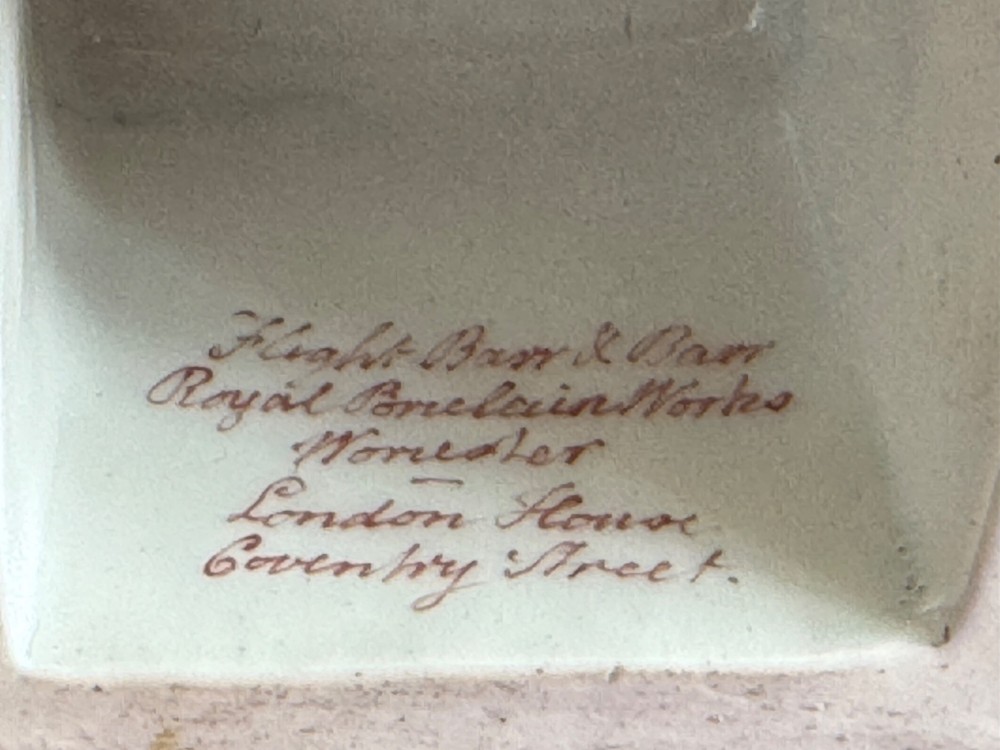 Flight Barr & Barr
Royal Porcelain Works
Worcester
London House
Coventry Street.